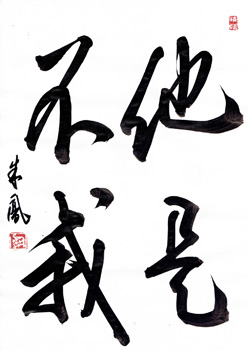 他是
不我
朱鳳